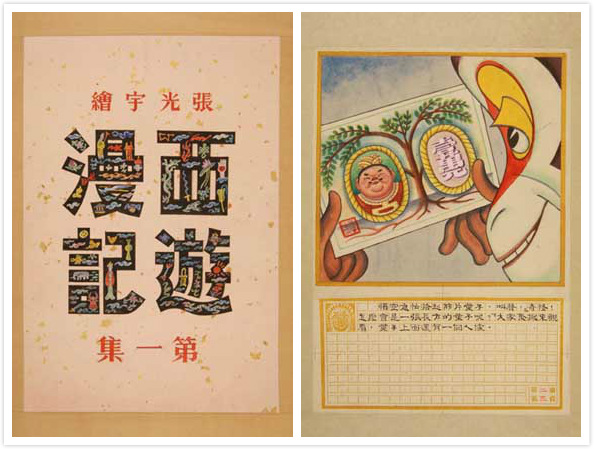 張光宇繪
西遊
漫記
第一集
悟空連忙拾起那片葉子，叫聲：奇怪！
怎麼會是一張長方的葉子呢！大家來觀
看，葉子上面還有一個人